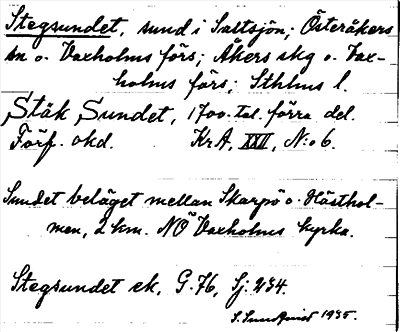 Stegsundet, sund i Saltsjön; Österåkers
sn o. Vaxholms förs; Åkers skg o. Vax-
holms förs; Sthlms l.
Stäk Sundet, 1700-tal. förra del.
Förf. okd. KrA, XXII, N:o 6.
Sundet beläget mellan Skarpö o. Hästhol-
men, 2 km. NÖ Vaxholms kyrka.
Stegsundet ek, G. 76, Sj: 234.
S. Sundqvist 1935.